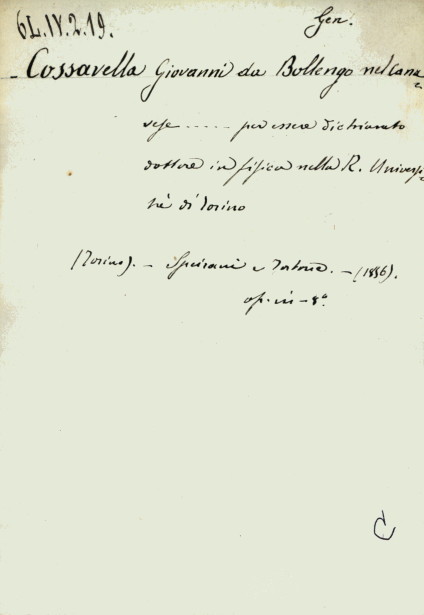 6L.IV.2.19.
Gen.
Cossavella Giovanni da Bollengo nel Cana=
vese ..... per essere dichiarato
dottore in fisica nella R. Universi=
tà di Torino
(Torino). - Speirani e Tortone. - (1856).
op. in-8°.
C